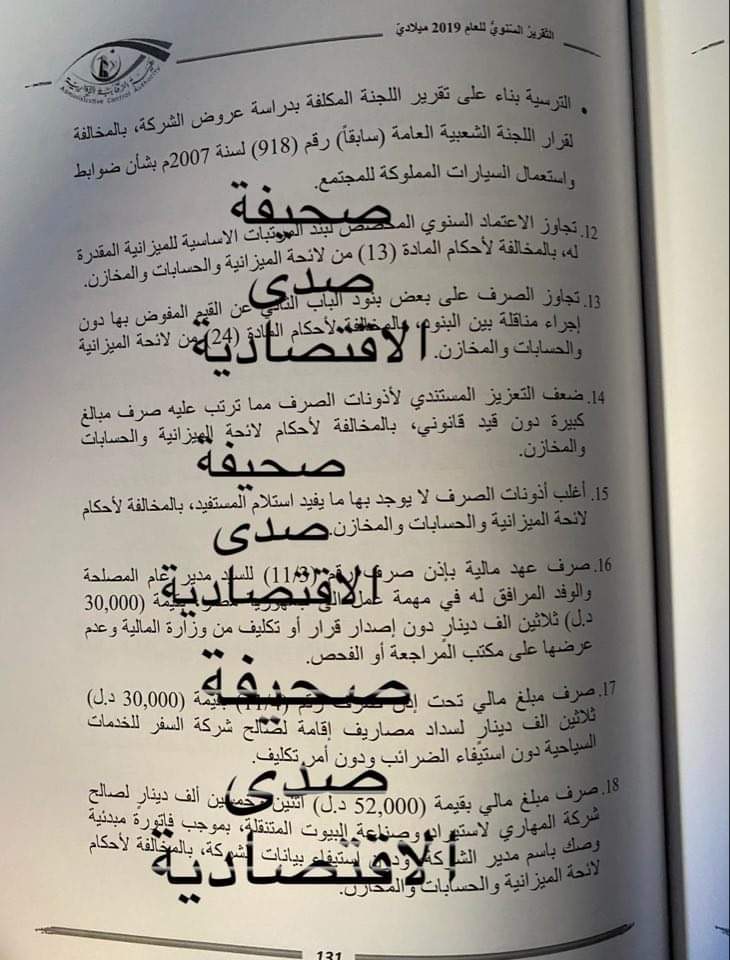 التقرير السنوي للعام 2019 ميلادي
Administrative Control Authority
• الترسية بناء على تقرير اللجنة المكلفة بدراسة عروض الشركة، بالمخالفة
لقرار اللجنة الشعبية العامة (سابقاً) رقم (918) لسنة 2007م بشأن ضوابط
واستعمال السيارات المملوكة للمجتمع.
صحيفة
12. تجاوز الاعتماد السنوي المخصص لبند المرتبات الاساسية للميزانية المقدرة
له، بالمخالفة لأحكام المادة (13) من لائحة الميزانية والحسابات والمخازن.
صدى
13. تجاوز الصرف على بعض بنود الباب الثاني عن القيم المفوض بها دون
إجراء مناقلة بين البنود، بالمخالفة لأحكام المادة (24) من لائحة الميزانية
الاقتصادية
والحسابات والمخازن.
14. ضعف التعزيز المستندي لأذونات الصرف مما ترتب عليه صرف مبالغ
كبيرة دون قيد قانوني، بالمخالفة لأحكام لائحة الميزانية والحسابات
والمخازن.
صحيفة
15. أغلب أذونات الصرف لا يوجد بها ما يفيد استلام المستفيد، بالمخالفة لأحكام
لائحة الميزانية والحسابات والمخازن.
صدى
16. صرف عهد مالية بإذن صرف رقم (11/3) للسيد مدير عام المصلحة
الاقتصادية
والوفد المرافق له في مهمة عمل إلى بقيمة (30,000
د.ل) ثلاثين الف دينار دون إصدار قرار أو تكليف من وزارة المالية وعدم
عرضها على مكتب المراجعة أو الفحص.
صحيفة
17. صرف مبلغ مالي تحت إذن صرف رقم (11/4) بقيمة (30,000 د.ل)
ثلاثين الف دينار لسداد مصاريف إقامة لصالح شركة السفر للخدمات
السياحية دون استيفاء الضرائب ودون أمر تكليف.
صدى
18. صرف مبلغ مالي بقيمة (52,000 د.ل) اثنين وخمسين ألف دينار لصالح
شركة المهاري لاستيراد وصناعة البيوت المتنقلة، بموجب فاتورة مبدئية
الاقتصادية
وصك باسم مدير الشركة ودون استيفاء بيانات الشركة، بالمخالفة لأحكام
لائحة الميزانية والحسابات والمخازن.
131